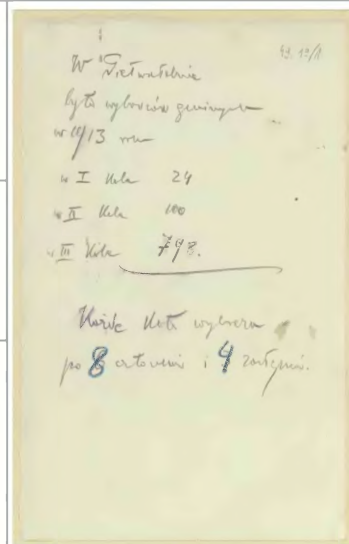 W
było wyborców gminnych
w 1913 roku
w I Kole 24
w II Kole 100
w III Kole 798.
Każde Koło wybiera
po 8 członków i 4 zastępców.